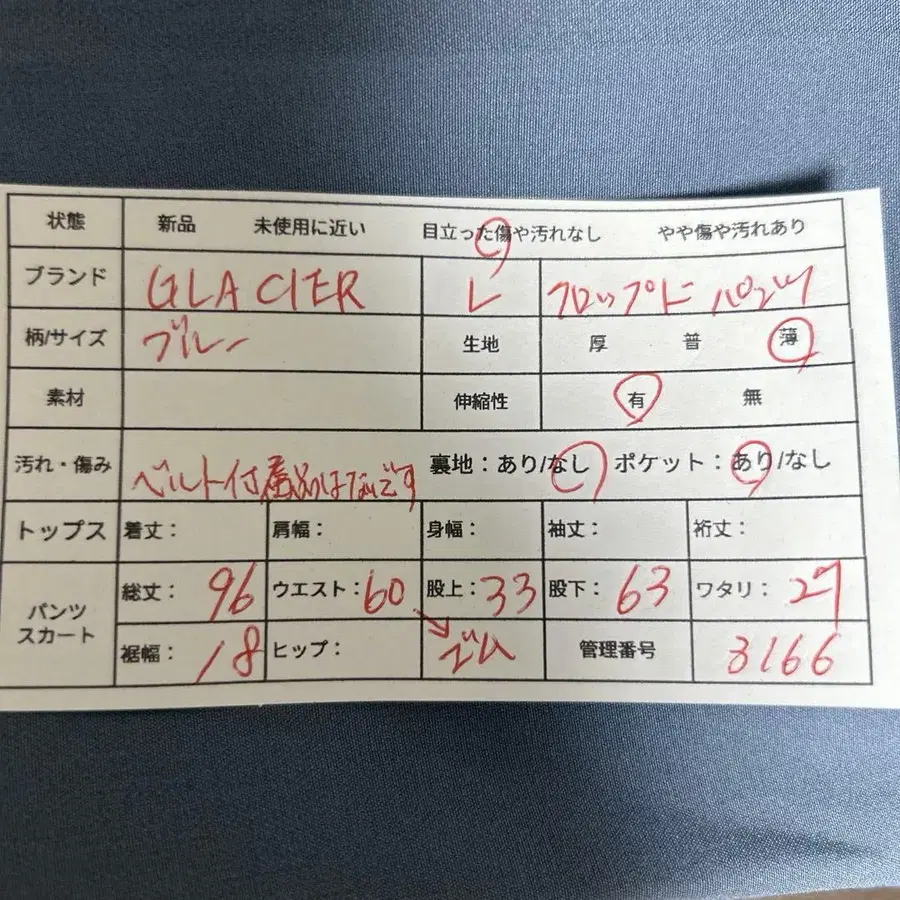 状態 新品 未使用に近い 目立った傷や汚れなし やや傷や汚れあり
ブランド GLACIER L クロップドパンツ
柄/サイズ ブルー 生地 厚 普 薄
素材 伸縮性 有 無
汚れ・傷み ベルト付属品はないです 裏地：あり/なし ポケット：あり/なし
トップス 着丈： 肩幅： 身幅： 袖丈： 裄丈：
パンツ スカート 総丈： 96 ウエスト：60 股上：33 股下： 63 ワタリ： 27
裾幅： 18 ヒップ： ゴム 管理番号 3166